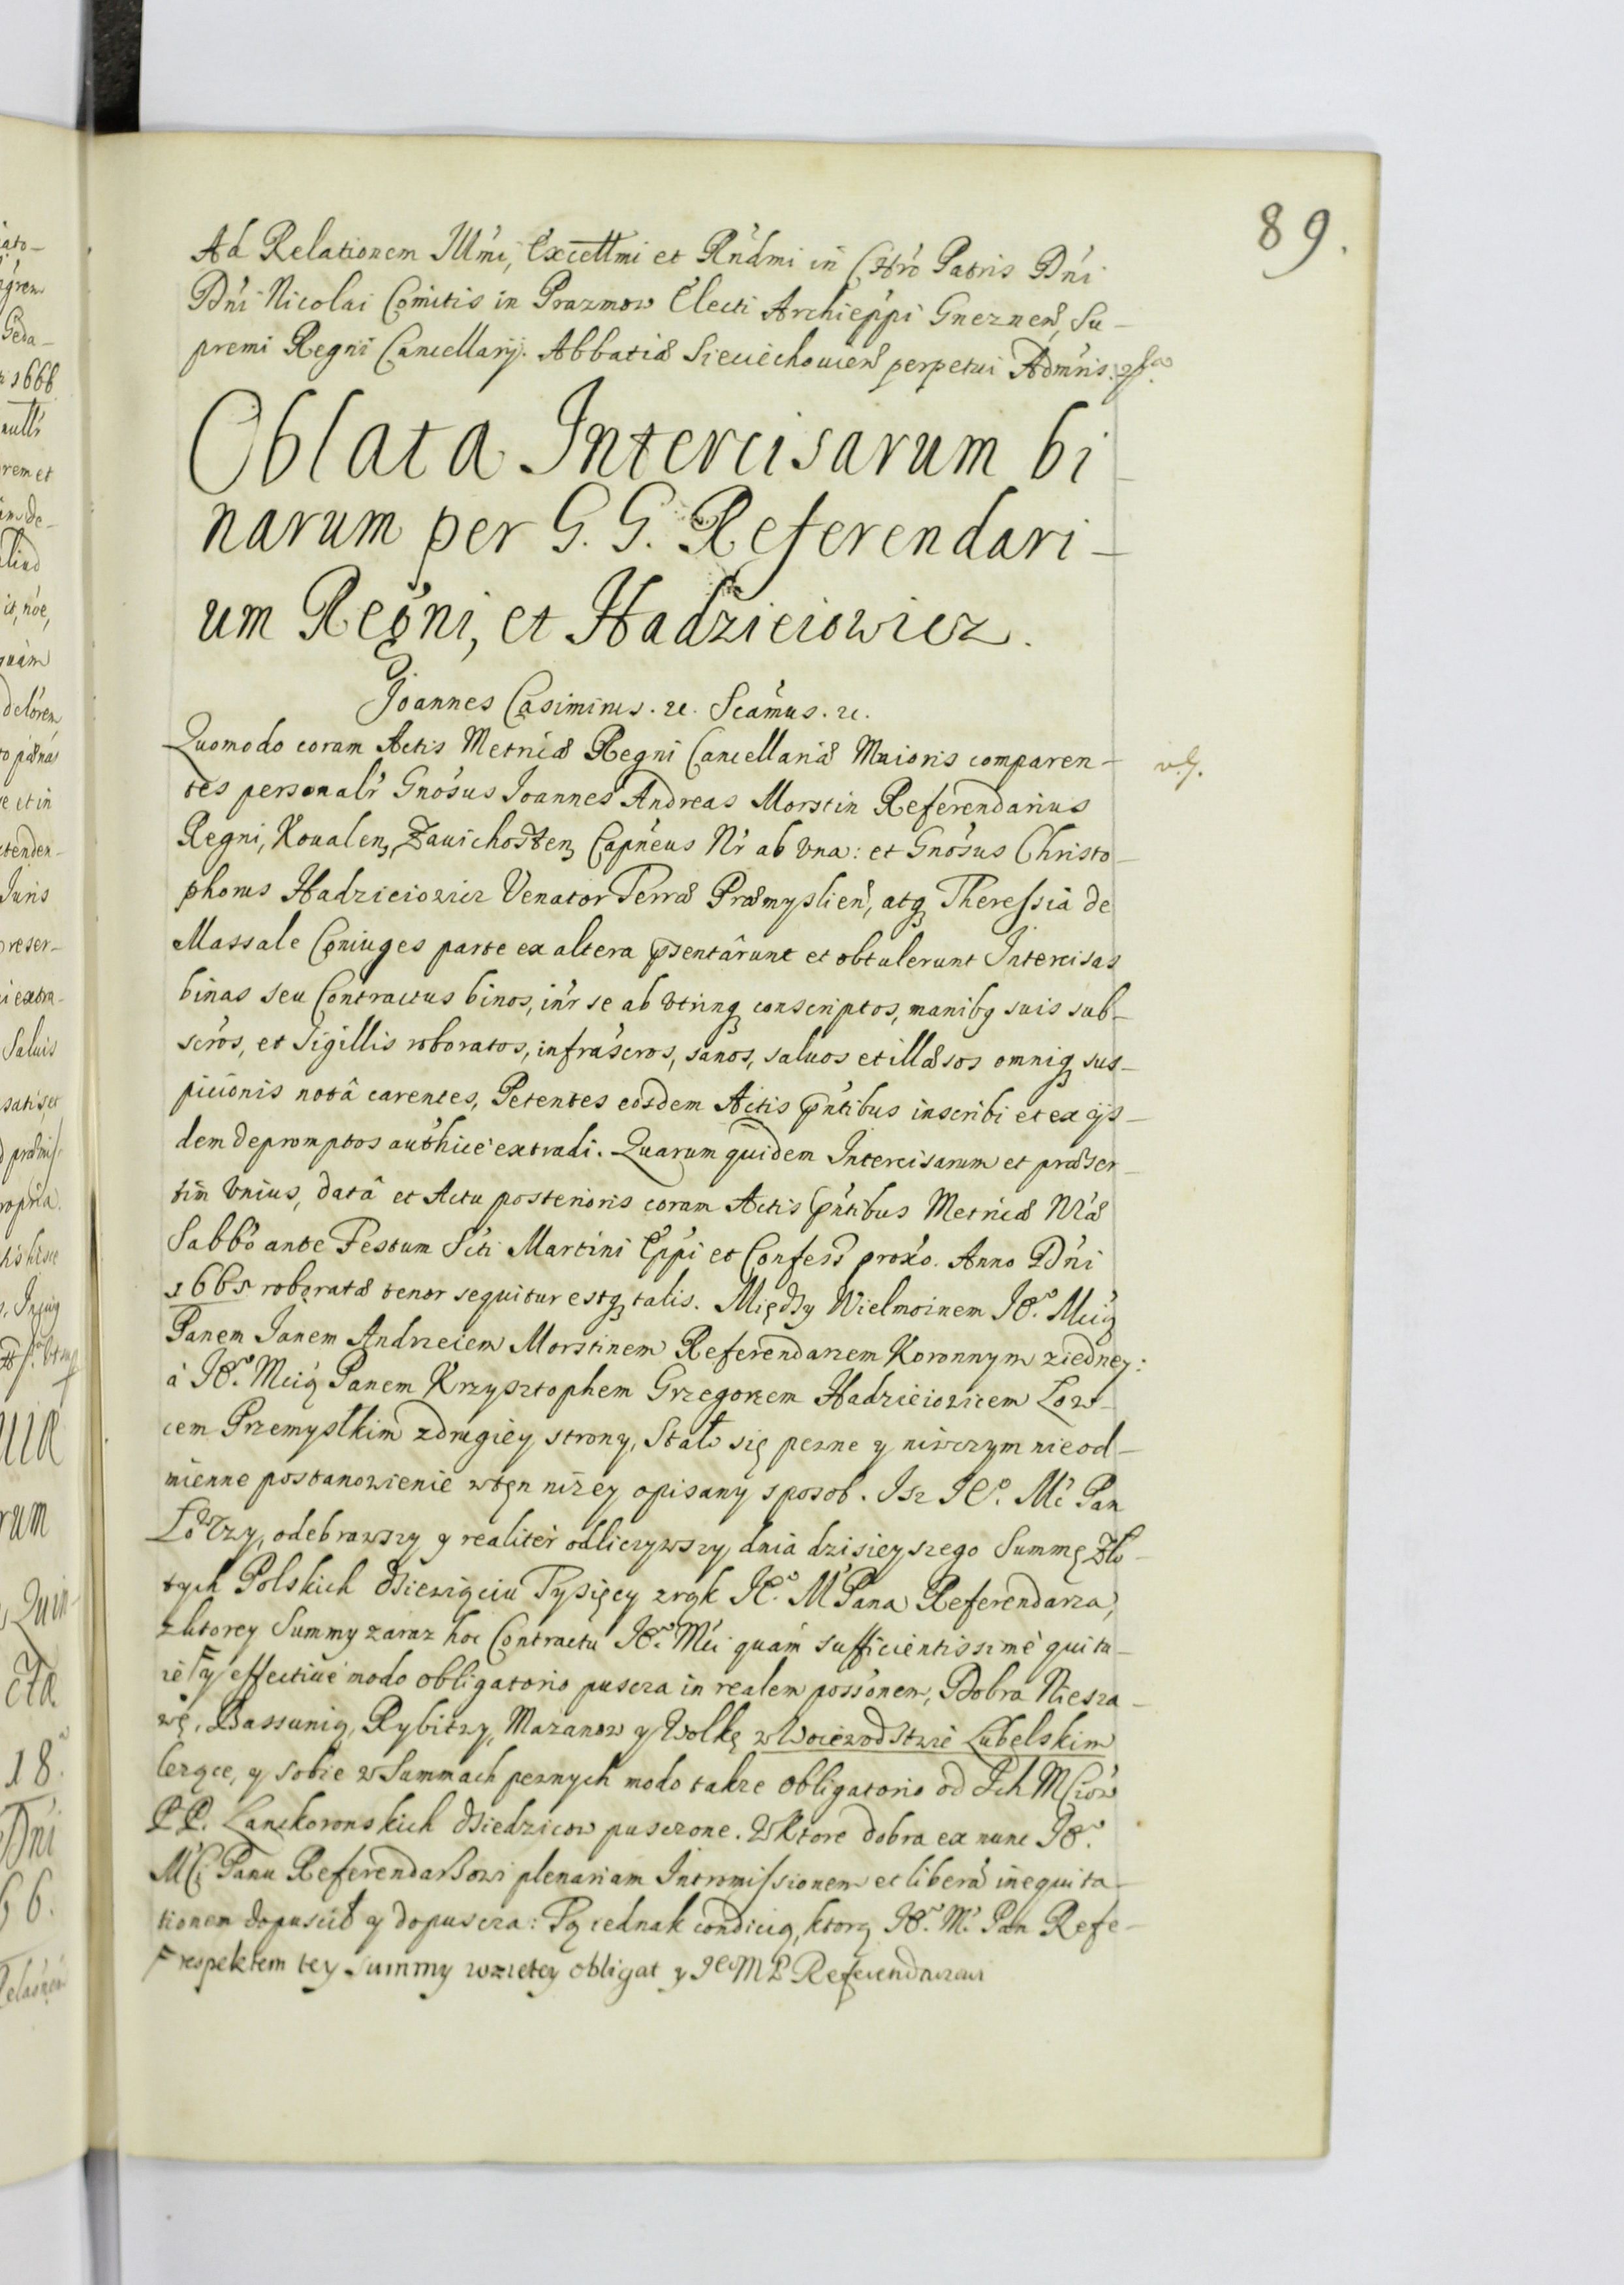 89.
Ad Relationem Illm̃i, Excellm̃i et Rñdmi in Chrõ Patris Dñi
Dñi Nicolai Comitis in Prazmow Electi Archieṕpi Gneznen̄, Su–
premi Regni Cancellarij. Abbatiæ Sieciechouien̄ perpetui Admńis.
Oblata Intercisarum bi
narum per G. G. Referendari–
um Regni, et Hadzieiowicz.
Joannes Casimirus. &c. Scámus. &c.
Quomodo coram Actis Metricæ Regni Cancellariæ Maioris comparen–
tes personalr̃ Gnósus Joannes Andreas Morstin Referendarius
Regni, Koualen, Zauichosten, Capńeus Nr̃ ab vna: et Gnósus Christo–
phorus Hadzieiowicz Venator Terræ Præmyslien̄, atq Theressia de
Massale Coniuges parte ex altera p̃sentârunt et obtulerunt Intercisas
binas seu Contractus binos, inr̃ se ab vtrinq conscriptos, manibq suis sub–
scrós, et Sigillis roboratos, infráscros, sanos, saluos et illæsos omniq sus–
picionis notâ carentes, Petentes eosdem Actis p̃ńtibus inscribi et ex ijs–
dem depromptos authicè extradi. Quarum quidem Intercisarum et præser–
tim vnius, datâ et Actu posterioris coram Actis p̃ńtibus Metricæ Nr̃æ
Sabbõ ante Festum Sc̃ti Martini Ep̃pi et Confess̄ prox̃o. Anno Dñi
1665 roboratæ tenor sequitur estq talis. Między Wielmoinem Je͠o Mcią
Panem Janem Andrzeiem Morstinem Referendarzem Koronnym ziedney:
à Je͠o Mcią Panem Krzysztophem Grzegorzem Hadzieiowicem Low–
cem Przemyslkim zdrugiey strony, Stało się pewne y niwczym nieod–
mienne postanowienie wtęn niżey opisany sposob. Isz Je͠o Mć Pan
Łowczy, odebrawszy y realiter odliczywszy dnia dzisieyszego Summę Zło–
tych Polskich dziewięciu Tysięcy zrąk Je͠o M Pana Referendarza,
zktorey Summy zaraz hoc Contractu Je͠o Mći quám sufficientissimè quitu–
ie F y effectiuè modo obligatorio puscza in realem possõnem, Dobra Niesza–
wę, Bassunią, Rybitwy, Mazanow y Wolkę wWoiewodstwie Lubelskim
leżące, y sobie wSummach pewnych modo takze obligatorio od Ich Mćiow
PP. Lanckoronskich dziedzicow pusczone. Wktore dobra ex nunc Je͠o
Mći Panu Referendarzowi plenariam Intromissionem et liberã inequita–
tionem dopuscił y dopuscza: Tą iednak condicią, ktorą Je͠o M Pan Refe–
F respektem tey Summy wzietey obligat y Jeo M P Referendarzowi